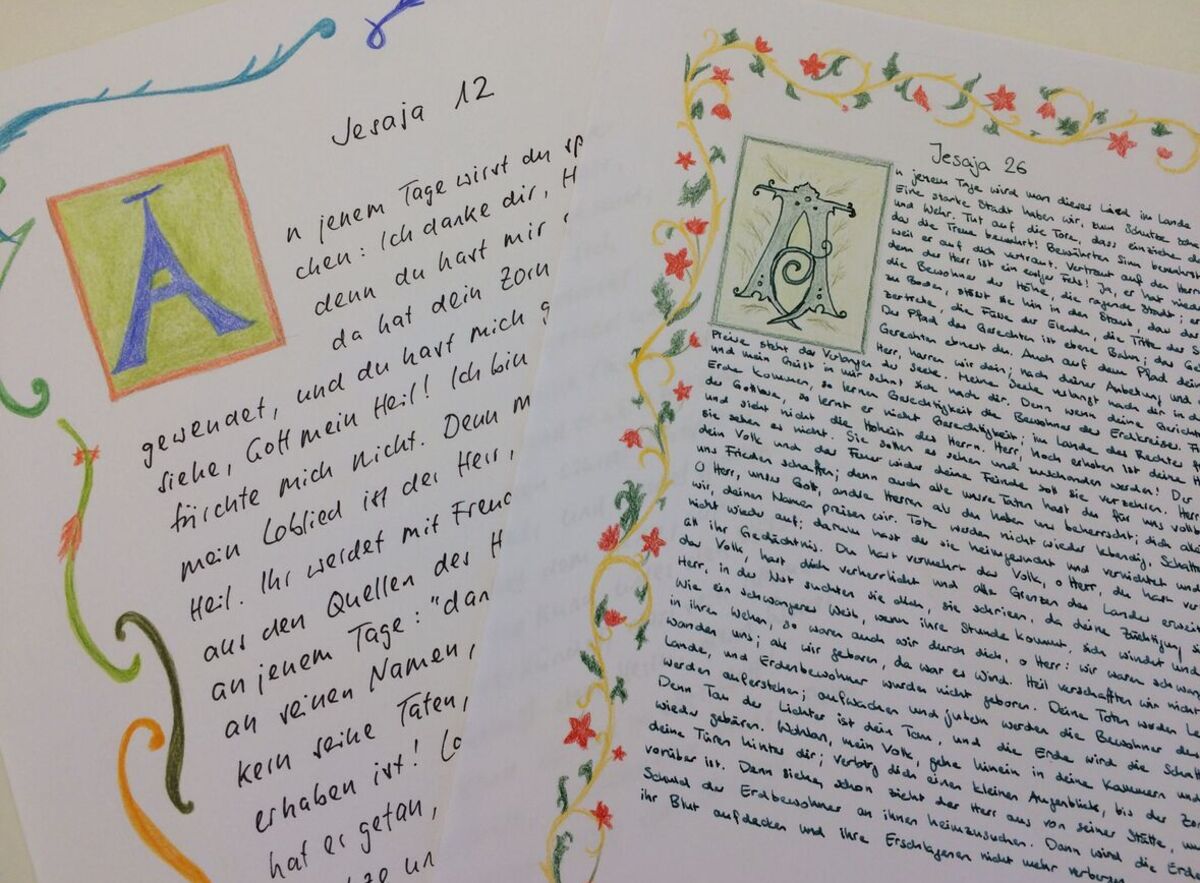 Jesaja 12
A
n jenem Tage wirst du sp
chen: Ich danke dir, H
denn du hast mir
da hat dein Zorn
gewendet, und du hast mich g
siehe, Gott mein Heil! Ich bin
fürchte mich nicht. Denn m
mein Loblied ist der Herr,
Heil. Ihr werdet mit Freud
aus den Quellen des H
an jenem Tage: "dan
an seinen Namen,
kern seine Taten,
erhaben ist! Lo
hat er getan,
ze un
Jesaja 26
A
n jenem Tage wird man dieses Lied im Lande
Eine starke Stadt haben wir, zum Schutze
und Wehr. Tut auf die Tore, dass einziehe
da die Treue bewahrt! Bewährten Sinn bewahrst
weil er auf dich vertraut. Vertraut auf den Herrn
denn der Herr ist ein ewiger Fels! Ja, er hat nied
die Bewohner der Höhe, die ragende Stadt;
zu Boden, stösst sie hin in den Staub, dass der
zertrete, die Füsse der Elenden, die Tritte der
Der Pfad des Gerechten ist ebene Bahn; das
Gerechten ebnest du. Auch auf dem Pfad dein
Herr, harren wir dein; nach deiner Anbetung und
Preise steht das Verlangen der Seele. Meine Seele verlangt nach dir in d
und mein Geist in mir sehnt sich nach dir. Denn wenn deine Gerichte
Erde kommen, so lernen Gerechtigkeit die Bewohner des Erdkreises.
der Gottlose, so lernt er nicht Gerechtigkeit; im Lande des Rechtes
und sieht nicht die Hoheit des Herrn. Herr, hoch erhoben ist deine H
sie sehen es nicht. Sie sollen es sehen und zuschanden werden! Der
dein Volk und das Feuer wider deine Feinde soll sie verzehren. Herr
uns Frieden schaffen; denn auch alle unsre Taten hast du für uns voll
O Herr, unser Gott, andre Herren als du haben uns beherrscht; dich alle
wir, deinen Namen preisen wir. Tote werden nicht wieder lebendig, Schatten
nicht wieder auf; darum hast du sie heimgesucht und vernichtet und
all ihr Gedächtnis. Du hast vermehrt das Volk, o Herr, du hast ver
das Volk, hast dich verherrlicht und alle Grenzen des Landes erweit
Herr, in der Not suchten sie dich, sie schrieen, da deine Züchtigung si
Wie ein schwangeres Weib, wenn ihre Stunde kommt, sich windet und
in ihren Wehen, so waren auch wir durch dich, o Herr: wir waren schwan
wanden uns; als wir geboren, da war es Wind. Heil verschafften wir nicht
Lande, und Erdenbewohner wurden nicht geboren. Deine Toten werden le
werden auferstehen; aufwachen und jubeln werden die Bewohner des
Denn Tau der Lichter ist dein Tau, und die Erde wird die Schatt
wieder gebären. Wohlan, mein Volk, gehe hinein in deine Kammern und
deine Türen hinter dir; verbirg dich einen kleinen Augenblick, bis der Zor
vorüber ist. Denn siehe, schon zieht der Herr aus von seiner Stätte, um
Schuld der Erdbewohner an ihnen heimzusuchen. Dann wird die Erde
ihr Blut aufdecken und ihre Erschlagenen nicht mehr verbergen